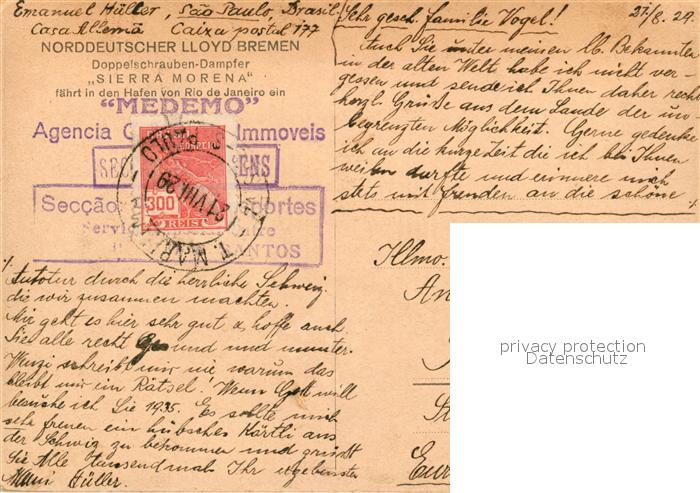 Emanuel Hüller, São Paulo, Brasil
Casa Allemã Caixa postal 177
NORDDEUTSCHER LLOYD BREMEN
Doppelschrauben-Dampfer
„SIERRA MORENA"
fährt in den Hafen von Rio de Janeiro ein
"MEDEMO"
Agencia Immoveis
SEC ENS
Secção portes
Servi
SANTOS
CORREIO
300
REIS
21 VIII 29
27/8. 29
Sehr gesch. Familie Vogel!
Auch Sie unter meinen lb. Bekannten
in der alten Welt habe ich nicht ver-
gessen und sende ich Ihnen daher recht
herzl. Grüsse aus dem Lande der un-
begrenzten Möglichkeit. Gerne gedenke
ich an die kurze Zeit die ich bei Ihnen
weilen durfte und erinnere mich
stets mit freuden an die schöne
Autotur durch die herrliche Schweiz,
die wir zusammen machten.
Mir geht es hier sehr gut & hoffe auch
Sie alle recht gesund und munter.
Wenzi schreibt mir nie warum das
bleibt mir ein Rätsel! Wenn Gott will
besuche ich Sie 1935. Es sollte mich
sehr freuen ein hübsches Kärtli aus
der Schweiz zu bekommen und grüsst
Sie Alle tausendmal Ihr ergebenster
Hüller.
Illmo.
An
St
Eur
privacy protection
Datenschutz